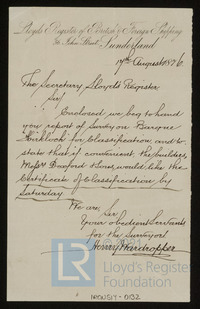 Lloyd's Register of British & Foreign Shipping
Sunderland
17th August 1876
The Secretary Lloyd's Register
Sir
Enclosed we beg to hand
you report of Survey on Barque
for Classification and to
state that if convenient, the builders
Messrs Doxford & Sons would like the
Certificate of Classification by
Saturday
We are, Sir
Your obedient Servants
for the Surveyors
Henry Wardropper
LR
Lloyd's Register
Foundation